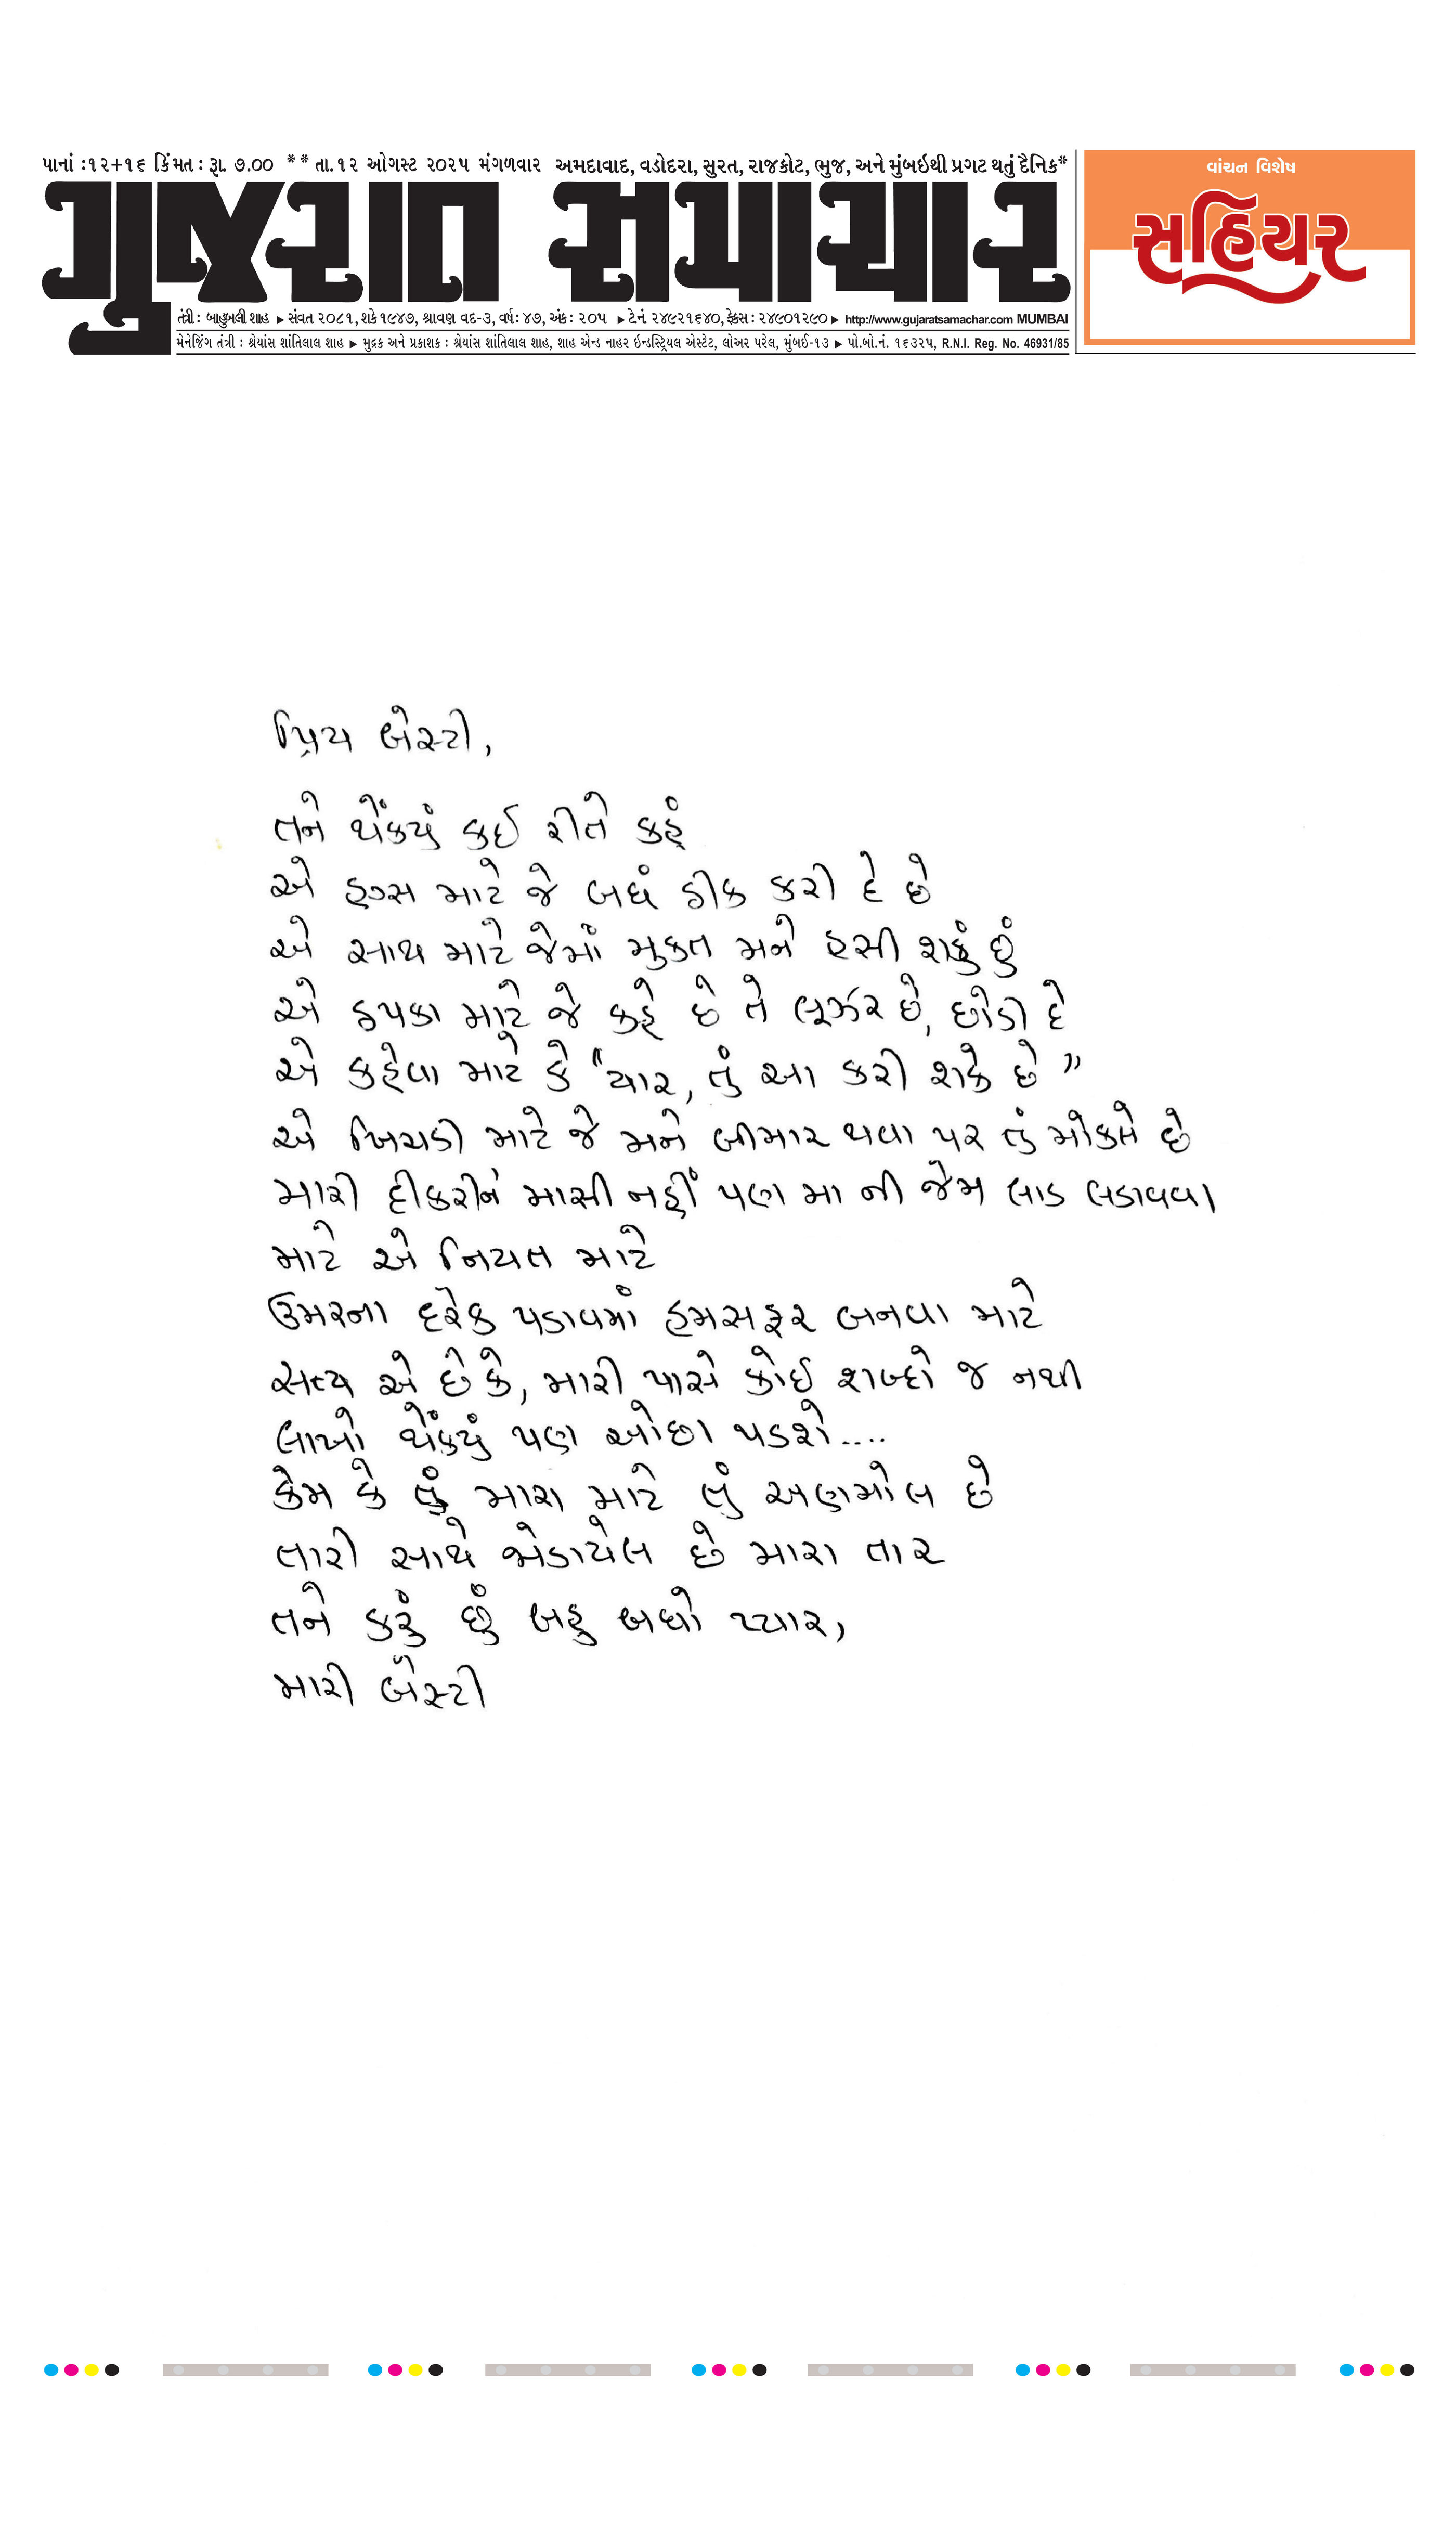 પાનાં :૧૨+૧૬ કિંમત : રૂા. ૭.૦૦ ** તા.૧૨ ઓગસ્ટ ૨૦૨૫ મંગળવાર અમદાવાદ, વડોદરા, સુરત, રાજકોટ, ભુજ, અને મુંબઇથી પ્રગટ થતું દૈનિક*
ગુજરાત સમાચાર
તંત્રી : બાહુબલી શાહ ▶ સંવત ૨૦૮૧, શકે ૧૯૪૭, શ્રાવણ વદ-૩, વર્ષ : ૪૭, અંક : ૨૦૫ ▶ ટેનં. ૨૪૯૨૧૬૪૦, ફેક્સ : ૨૪૯૦૧૨૯૦ ▶ http://www.gujaratsamachar.com MUMBAI
મેનેજિંગ તંત્રી : શ્રેયાંસ શાંતિલાલ શાહ ▶ મુદ્રક અને પ્રકાશક : શ્રેયાંસ શાંતિલાલ શાહ, શાહ એન્ડ નાહર ઇન્ડસ્ટ્રિયલ એસ્ટેટ, લોઅર પરેલ, મુંબઈ-૧૩ ▶ પો.બો.નં. ૧૬૩૨૫, R.N.I. Reg. No. 46931/85
વાંચન વિશેષ
સહિયર
પ્રિય બેસ્ટી,
તને થેંક્યું કઈ રીતે કહું
એ હગ્સ માટે જે બધું ઠીક કરી દે છે
એ સાથ માટે જેમાં મુક્ત મને હસી શકું છું
એ ઠપકા માટે જે કહે છે તે લૂઝર છે, છોડી દે
એ કહેવા માટે કે "યાર, તું આ કરી શકે છે"
એ ખિચડી માટે જે મને બીમાર થવા પર તું મોકલે છે
મારી દીકરીને માસી નહીં પણ મા ની જેમ લાડ લડાવવા
માટે એ નિયત માટે
ઉંમરના દરેક પડાવમાં હમસફર બનવા માટે
સત્ય એ છે કે, મારી પાસે કોઈ શબ્દો જ નથી
લાખો થેંક્યું પણ ઓછા પડશે....
કેમ કે તું મારા માટે તું અણમોલ છે
તારી સાથે જોડાયેલ છે મારા તાર
તને કરું છું બહુ બધો પ્યાર,
મારી બેસ્ટી